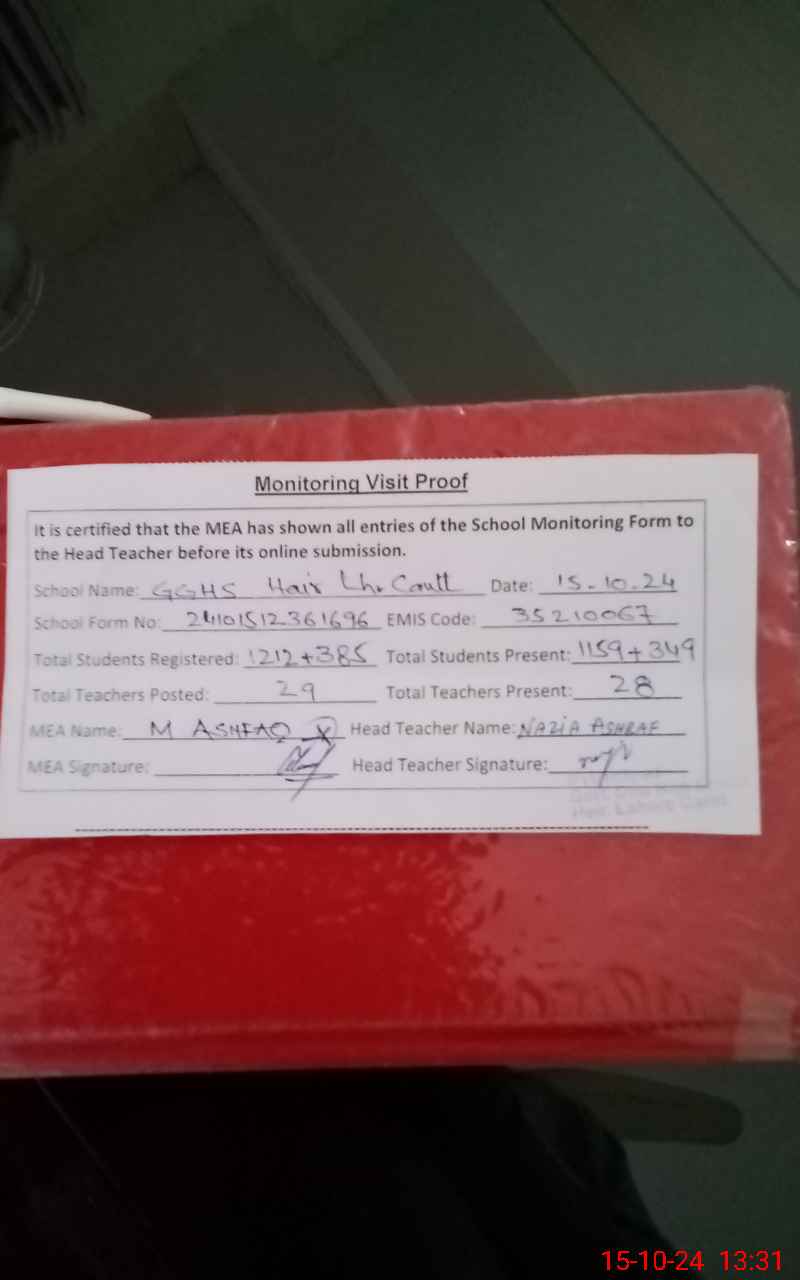 Monitoring Visit Proof
It is certified that the MEA has shown all entries of the School Monitoring Form to
the Head Teacher before its online submission.
School Name: GGHS Hair Lhr Cantt Date: 15-10-24
School Form No: 24101512361696 EMIS Code: 35210067
Total Students Registered: 1212+385 Total Students Present: 1159+349
Total Teachers Posted: 29 Total Teachers Present: 28
MEA Name: M ASHFAQ Head Teacher Name: NAZIA ASHRAF
MEA Signature: Head Teacher Signature:
15-10-24 13:31